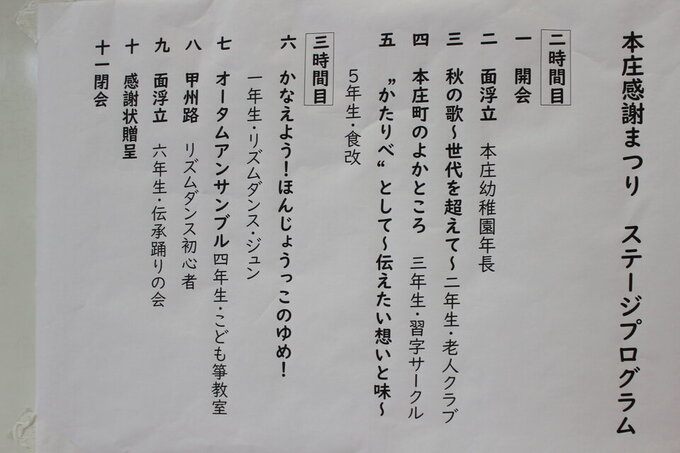 本庄感謝まつり　ステージプログラム
二時間目
一　開会
二　面浮立　本庄幼稚園年長
三　秋の歌～世代を超えて～二年生・老人クラブ
四　本庄町のよかところ　三年生・習字サークル
五　〝かたりべ〟として～伝えたい想いと味～
５年生・食改
三時間目
六　かなえよう！ほんじょうっこのゆめ！
一年生・リズムダンス・ジュン
七　オータムアンサンブル 四年生・こども箏教室
八　甲州路　リズムダンス初心者
九　面浮立　六年生・伝承踊りの会
十　感謝状贈呈
十一閉会